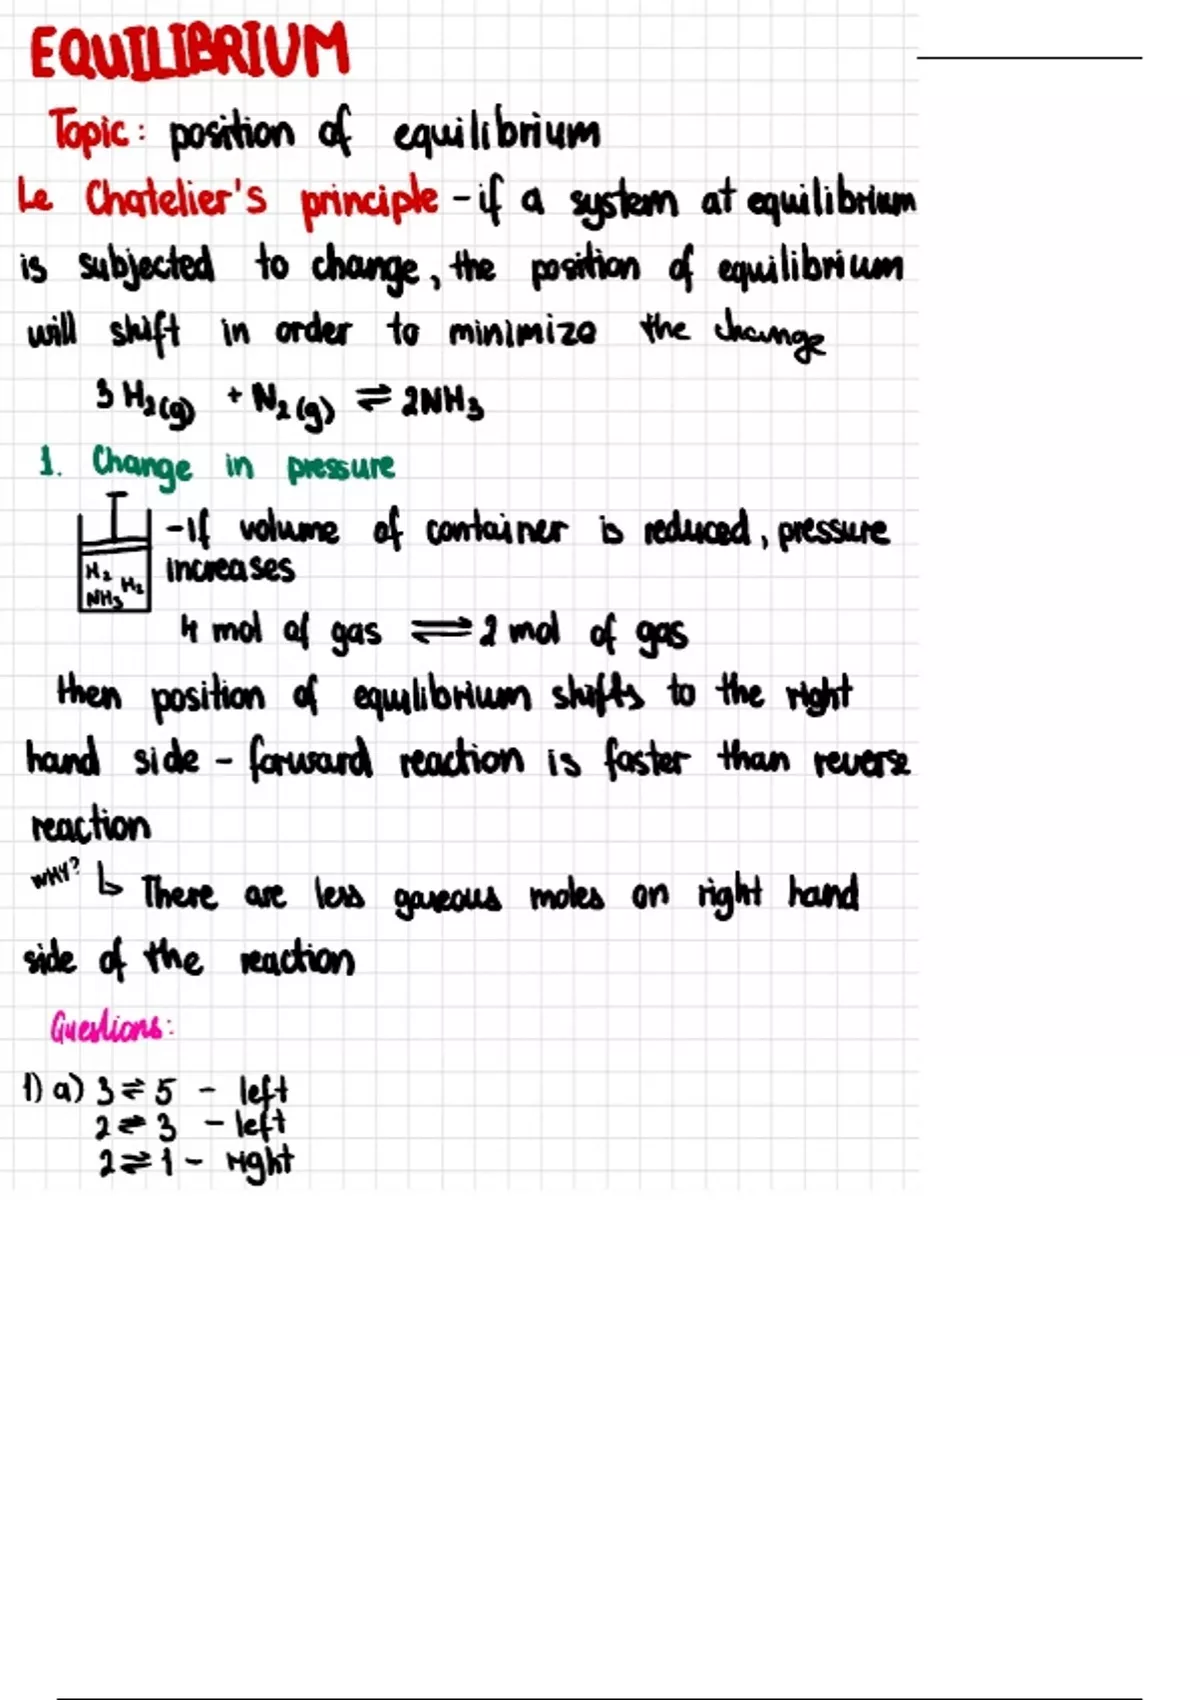 EQUILIBRIUM
Topic: position of equilibrium
Le Chatelier's principle - if a system at equilibrium
is subjected to change, the position of equilibrium
will shift in order to minimize the change
3 H₂(g) + N₂(g) ⇌ 2NH₃
1. Change in pressure
- If volume of container is reduced, pressure
increases
H₂ H₂
NH₃
4 mol of gas ⇌ 2 mol of gas
then position of equilibrium shifts to the right
hand side - forward reaction is faster than reverse
reaction
WHY? ↳ There are less gaseous moles on right hand
side of the reaction
Questions:
1) a) 3 ⇌ 5 - left
2 ⇌ 3 - left
2 ⇌ 1 - right